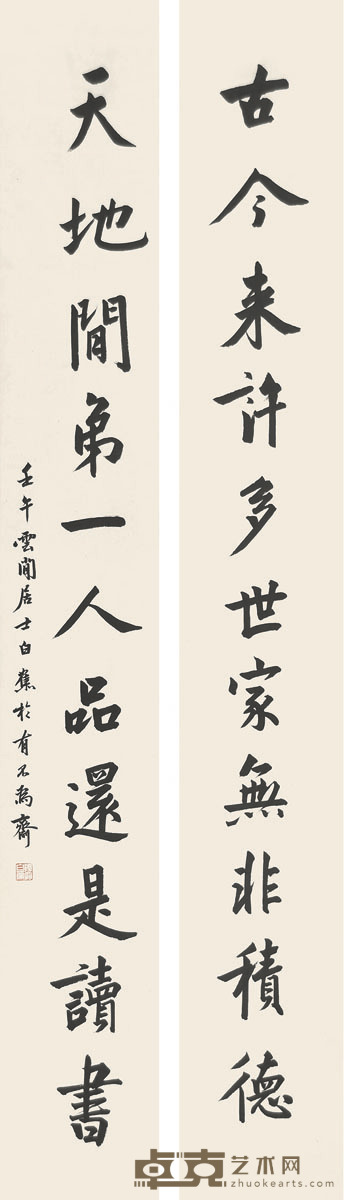 古今来許多世家無非積德
天地間第一人品還是讀書
壬午雲間居士白蕉於有不為齋
卓克艺术网
zhuokearts.com